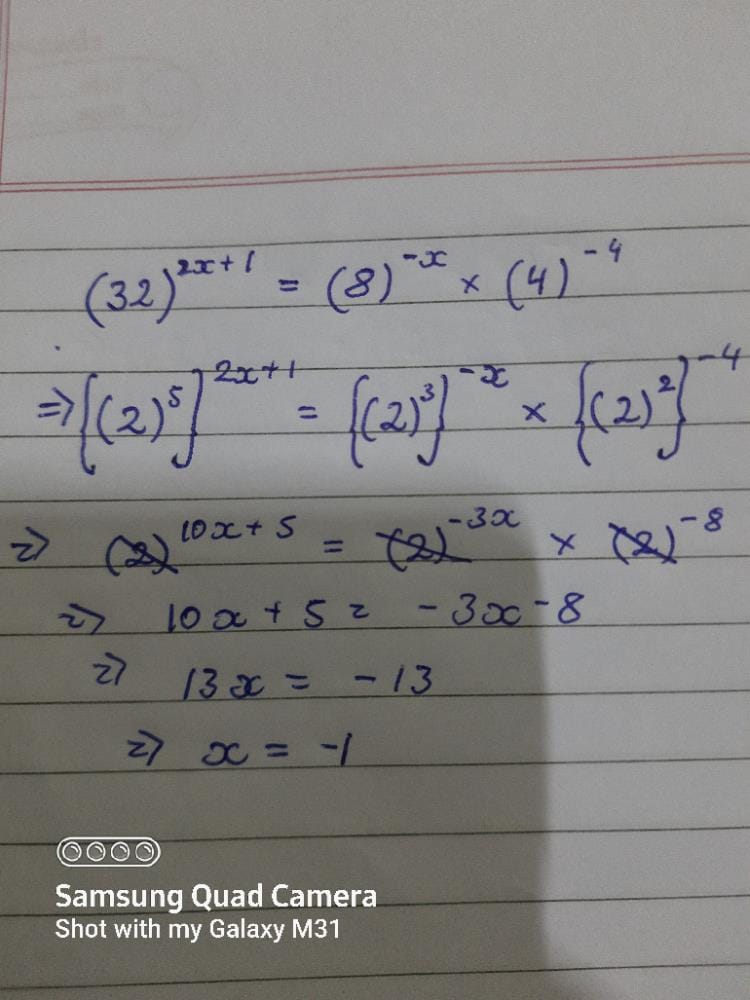 (32)^{2x+1} = (8)^{-x} × (4)^{-4}
⇒ {(2)^5}^{2x+1} = {(2)^3}^{-x} × {(2)^2}^{-4}
⇒ (2)^{10x+5} = (2)^{-3x} × (2)^{-8}
⇒ 10x + 5 = -3x - 8
⇒ 13x = -13
⇒ x = -1
Samsung Quad Camera
Shot with my Galaxy M31